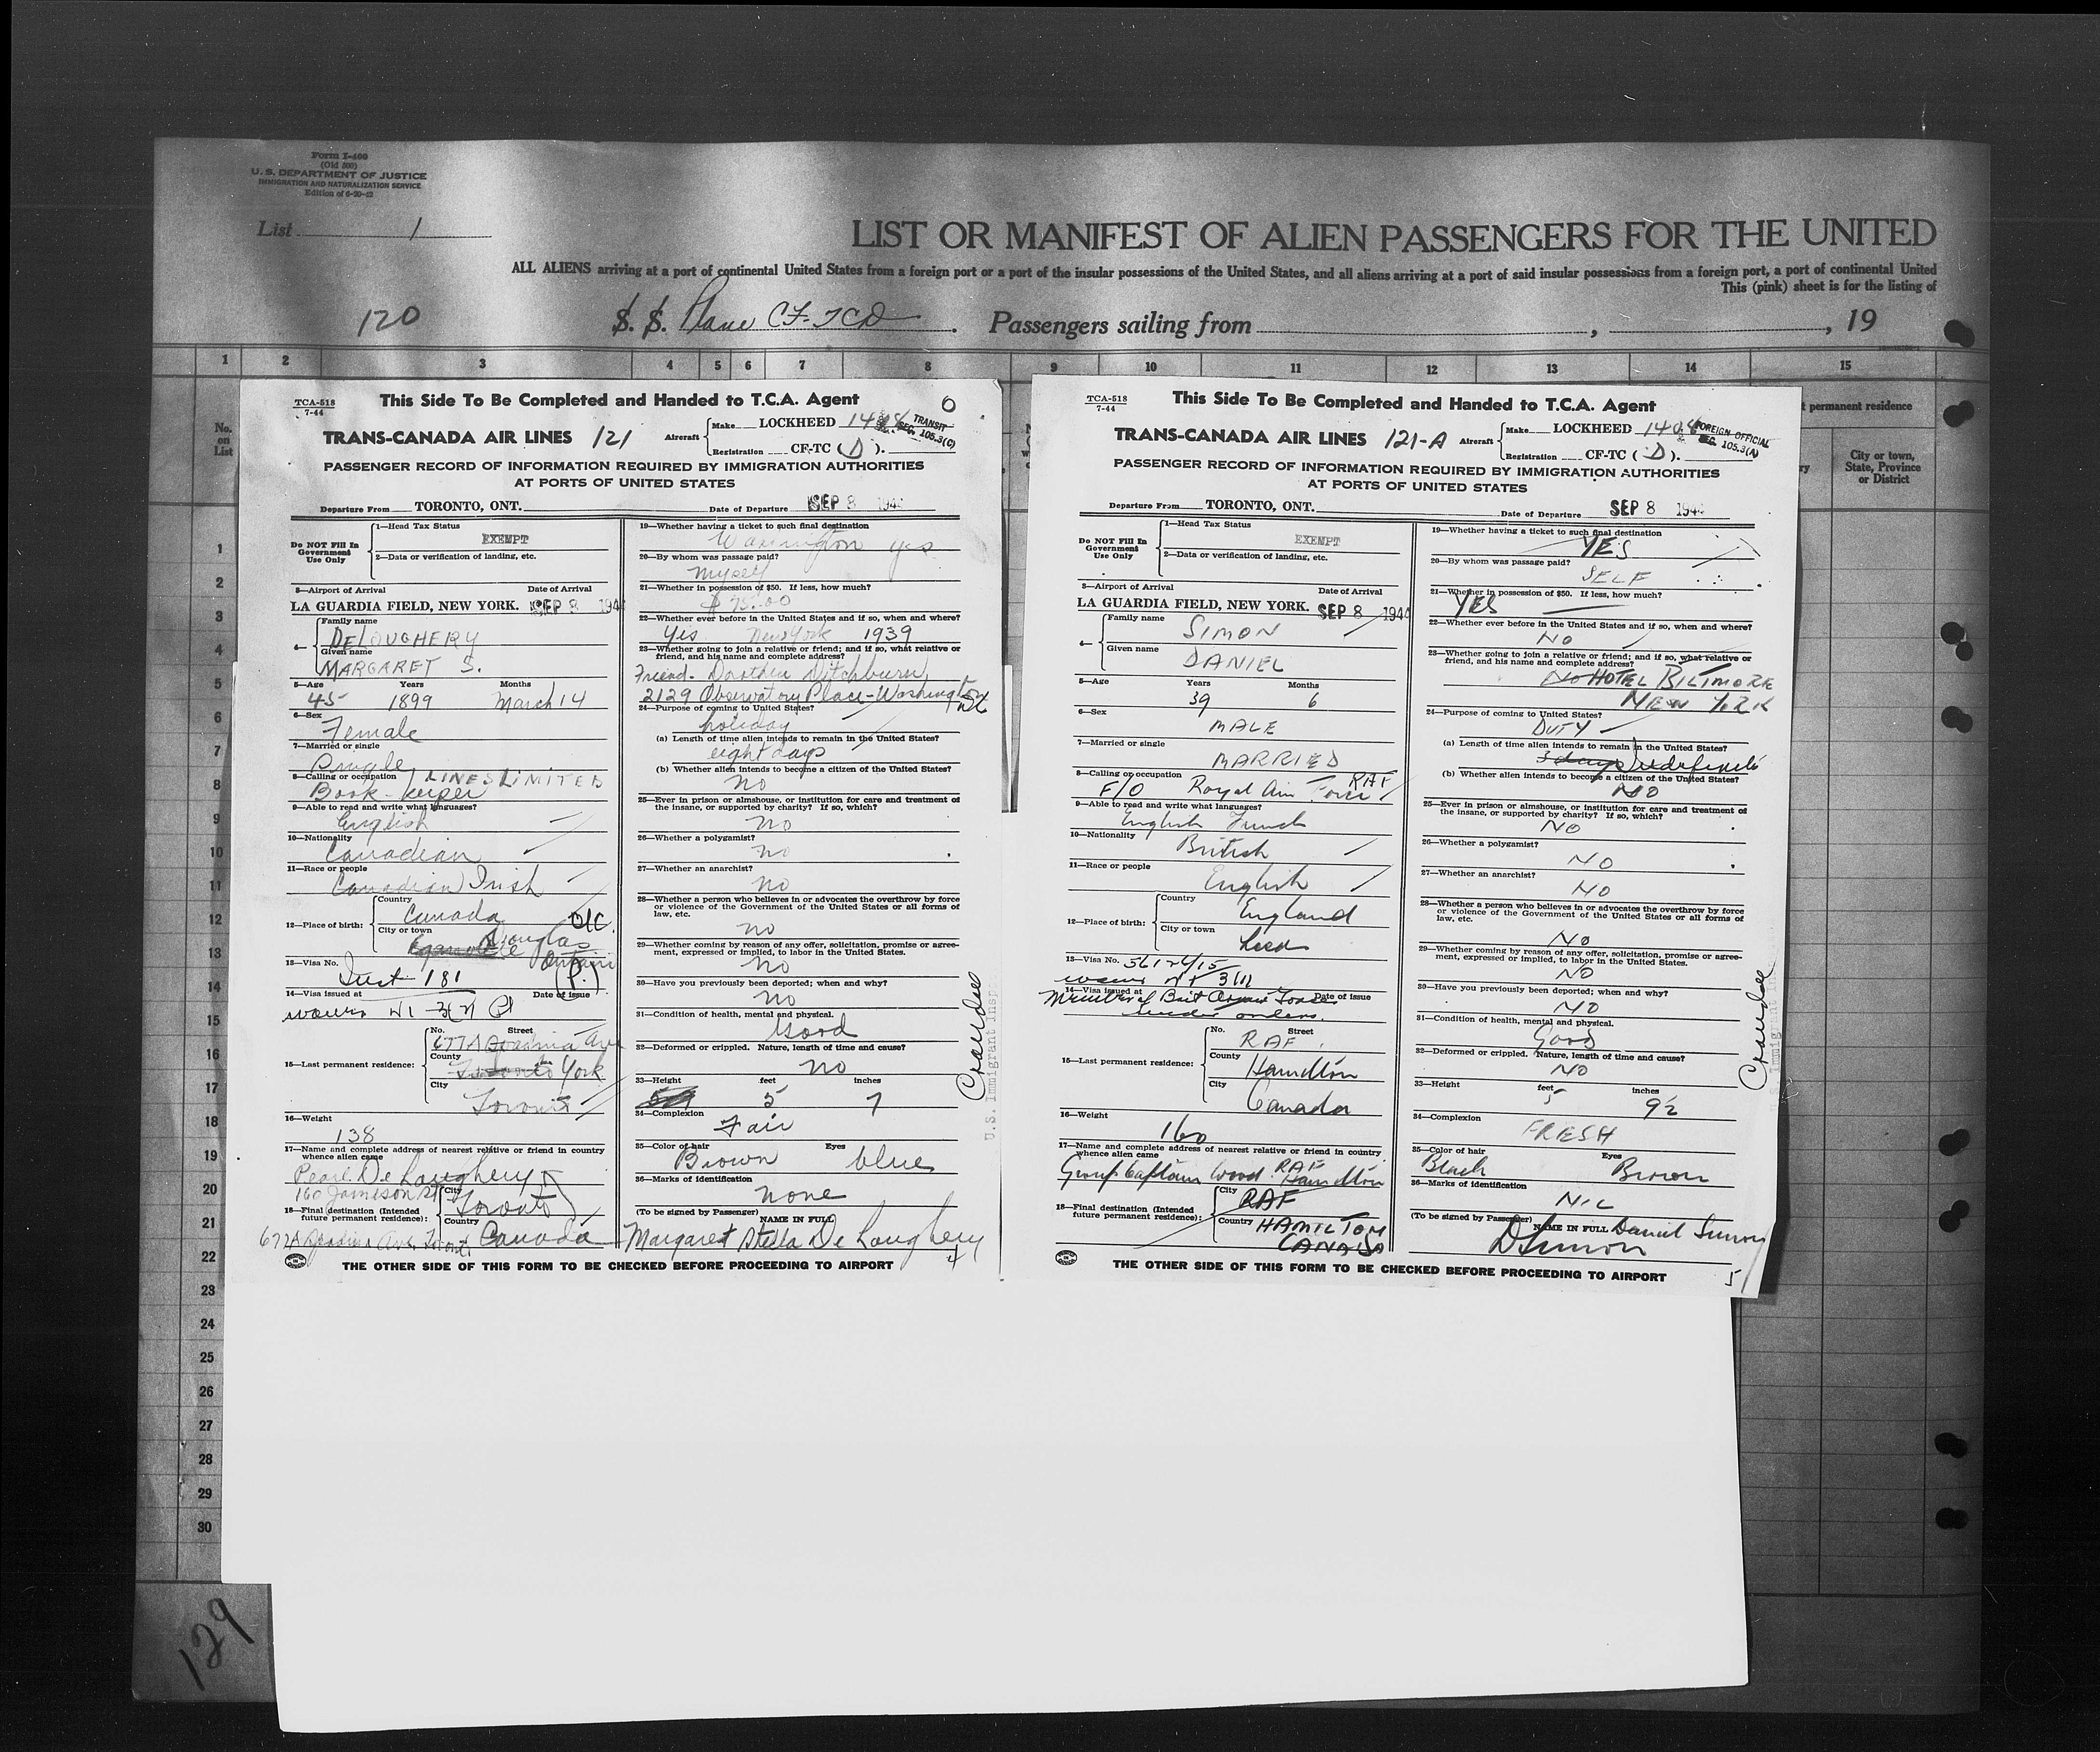 Form I-400
(Old 500)
U. S. DEPARTMENT OF JUSTICE
IMMIGRATION AND NATURALIZATION SERVICE
Edition of 6-20-42
List 1
LIST OR MANIFEST OF ALIEN PASSENGERS FOR THE UNITED
ALL ALIENS arriving at a port of continental United States from a foreign port or a port of the insular possessions of the United States, and all aliens arriving at a port of said insular possessions from a foreign port, a port of continental United
This (pink) sheet is for the listing of
120 S. S. Plane CF-TCD. Passengers sailing from , , 19
1 2 3 4 5 6 7 8 9 10 11 12 13 14 15
No. on List
permanent residence
City or town, State, Province or District
TCA-518
7-44
This Side To Be Completed and Handed to T.C.A. Agent
TRANS-CANADA AIR LINES 121
Aircraft
Make LOCKHEED 1408
Registration CF-TC (D).
TRANSIT
SEC. 105.3(C)
PASSENGER RECORD OF INFORMATION REQUIRED BY IMMIGRATION AUTHORITIES
AT PORTS OF UNITED STATES
Departure From TORONTO, ONT. Date of Departure SEP 8 194
Do NOT Fill In Government Use Only
1—Head Tax Status
EXEMPT
2—Data or verification of landing, etc.
3—Airport of Arrival Date of Arrival
LA GUARDIA FIELD, NEW YORK. SEP 8 194
4— Family name
DELOUGHERY
Given name
MARGARET S.
5—Age Years Months
45 1899 March 14
6—Sex
Female
7—Married or single
Single
8—Calling or occupation LINES LIMITED
Book-keeper
9—Able to read and write what languages?
English
10—Nationality
Canadian
11—Race or people
Canadian Irish
12—Place of birth:
Country
Canada
City or town
Douglas
Ontario
13—Visa No.
181
14—Visa issued at Date of issue
15—Last permanent residence:
No. Street
677A
County
York
City
Toronto
16—Weight
138
17—Name and complete address of nearest relative or friend in country
whence alien came
Pearl De Loughery
160 Jameson
18—Final destination (Intended
future permanent residence):
City
Toronto
Country
Canada
19—Whether having a ticket to such final destination
Washington yes
20—By whom was passage paid?
Myself
21—Whether in possession of $50. If less, how much?
$75.00
22—Whether ever before in the United States and if so, when and where?
Yes New York 1939
23—Whether going to join a relative or friend; and if so, what relative or
friend, and his name and complete address?
Friend - Dorothy Ditchburn
2129 Observatory Place - Washington
24—Purpose of coming to United States?
holiday
(a) Length of time alien intends to remain in the United States?
eight days
(b) Whether alien intends to become a citizen of the United States?
No
25—Ever in prison or almshouse, or institution for care and treatment of
the insane, or supported by charity? If so, which?
No
26—Whether a polygamist?
No
27—Whether an anarchist?
No
28—Whether a person who believes in or advocates the overthrow by force
or violence of the Government of the United States or all forms of
law, etc.
No
29—Whether coming by reason of any offer, solicitation, promise or agree-
ment, expressed or implied, to labor in the United States.
No
30—Have you previously been deported; when and why?
No
31—Condition of health, mental and physical.
Good
32—Deformed or crippled. Nature, length of time and cause?
No
33—Height feet inches
5 7
34—Complexion
Fair
35—Color of hair Eyes
Brown blue
36—Marks of identification
None
(To be signed by Passenger) NAME IN FULL
Margaret Stella De Loughery
4
THE OTHER SIDE OF THIS FORM TO BE CHECKED BEFORE PROCEEDING TO AIRPORT
U.S. Immigrant Insp.
TCA-518
7-44
This Side To Be Completed and Handed to T.C.A. Agent
TRANS-CANADA AIR LINES 121-A
Aircraft
Make LOCKHEED 1408
Registration CF-TC (D).
FOREIGN OFFICIAL
SEC. 105.3(A)
PASSENGER RECORD OF INFORMATION REQUIRED BY IMMIGRATION AUTHORITIES
AT PORTS OF UNITED STATES
Departure From TORONTO, ONT. Date of Departure SEP 8 1944
Do NOT Fill In Government Use Only
1—Head Tax Status
EXEMPT
2—Data or verification of landing, etc.
3—Airport of Arrival Date of Arrival
LA GUARDIA FIELD, NEW YORK. SEP 8 1944
4— Family name
SIMON
Given name
DANIEL
5—Age Years Months
39 6
6—Sex
MALE
7—Married or single
MARRIED
8—Calling or occupation RAF
F/O Royal Air Force
9—Able to read and write what languages?
English French
10—Nationality
British
11—Race or people
English
12—Place of birth:
Country
England
City or town
Leeds
13—Visa No.
14—Visa issued at Date of issue
Member of Brit Armed Forces
under orders.
15—Last permanent residence:
No. Street
RAF
County
Hamilton
City
Canada
16—Weight
160
17—Name and complete address of nearest relative or friend in country
whence alien came
Group Captain Wood. RAF Hamilton
18—Final destination (Intended
future permanent residence):
City
RAF
Country
HAMILTON
CANADA
19—Whether having a ticket to such final destination
YES
20—By whom was passage paid?
SELF
21—Whether in possession of $50. If less, how much?
YES
22—Whether ever before in the United States and if so, when and where?
NO
23—Whether going to join a relative or friend; and if so, what relative or
friend, and his name and complete address?
No HOTEL BILTMORE
NEW YORK
24—Purpose of coming to United States?
DUTY
(a) Length of time alien intends to remain in the United States?
3 days Indefinite
(b) Whether alien intends to become a citizen of the United States?
NO
25—Ever in prison or almshouse, or institution for care and treatment of
the insane, or supported by charity? If so, which?
NO
26—Whether a polygamist?
NO
27—Whether an anarchist?
NO
28—Whether a person who believes in or advocates the overthrow by force
or violence of the Government of the United States or all forms of
law, etc.
NO
29—Whether coming by reason of any offer, solicitation, promise or agree-
ment, expressed or implied, to labor in the United States.
NO
30—Have you previously been deported; when and why?
NO
31—Condition of health, mental and physical.
Good
32—Deformed or crippled. Nature, length of time and cause?
NO
33—Height feet inches
5 9½
34—Complexion
FRESH
35—Color of hair Eyes
Black Brown
36—Marks of identification
NIL
(To be signed by Passenger) NAME IN FULL Daniel Simon
DSimon
5
THE OTHER SIDE OF THIS FORM TO BE CHECKED BEFORE PROCEEDING TO AIRPORT
1
2
3
4
5
6
7
8
9
10
11
12
13
14
15
16
17
18
19
20
21
22
23
24
25
26
27
28
29
30
129